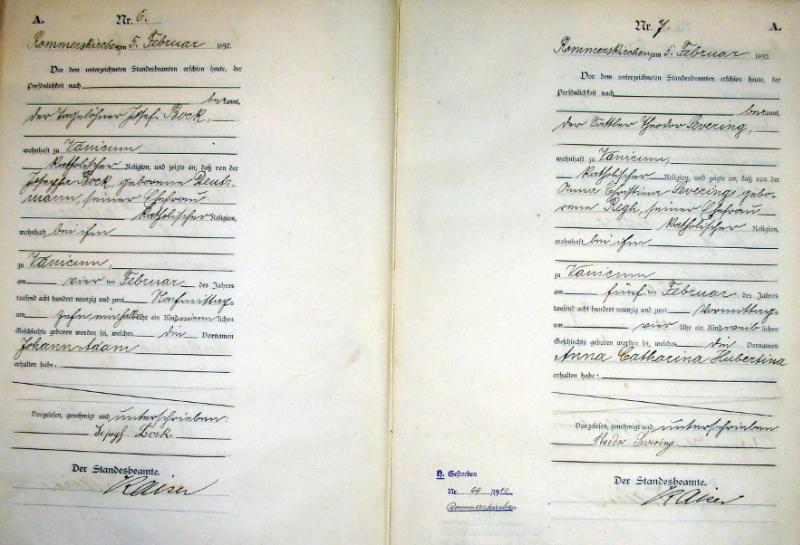 A. Nr. 6.
Rommerskirchen am 5. Februar 1892.
Vor dem unterzeichneten Standesbeamten erschien heute, der
Persönlichkeit nach
bekannt,
der Tagelöhner Josef Bock,
wohnhaft zu Vanicum
katholischer Religion, und zeigte an, daß von der
Bock, geborene
mann, seiner Ehefrau
katholischer Religion,
wohnhaft bei ihm
zu Vanicum
am vier ten Februar des Jahres
tausend acht hundert neunzig und zwei Nachmittags
um zehn ein halb Uhr ein Kind männlichen
Geschlechts geboren worden sei, welches die Vornamen
Johann Adam
erhalten habe.
Vorgelesen, genehmigt und unterschrieben:
Josef Bock
Der Standesbeamte.
Kaiser
Nr. 7. A.
Rommerskirchen am 5. Februar 1892.
Vor dem unterzeichneten Standesbeamten erschien heute, der
Persönlichkeit nach
bekannt,
der Sattler Theodor Severing,
wohnhaft zu Vanicum,
katholischer Religion, und zeigte an, daß von der
Anna Christina Severing, gebo-
rene Regh, seiner Ehefrau
katholischer Religion,
wohnhaft bei ihm
zu Vanicum
am fünf ten Februar des Jahres
tausend acht hundert neunzig und zwei Vormittags
um vier Uhr ein Kind weiblichen
Geschlechts geboren worden sei, welches die Vornamen
Anna Catharina Hubertina
erhalten habe.
Vorgelesen, genehmigt und unterschrieben
Theodor Severing.
Der Standesbeamte.
Kaiser
Gestorben
Nr.
Rommerskirchen